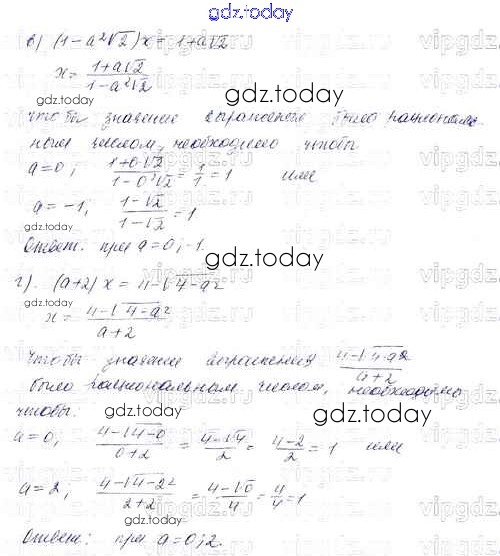 gdz.today
в) (1-a²√2)x = 1+a√2
x = (1+a√2)/(1-a²√2)
чтобы значение выражения было рациональным числом, необходимо чтобы
a=0; (1+0·√2)/(1-0²√2) = 1/1 = 1 или
a=-1, (1-√2)/(1-√2) = 1
Ответ: при a=0;-1.
gdz.today
г). (a+2)x = 4-√(4-a²)
x = (4-√(4-a²))/(a+2)
чтобы значение выражения (4-√(4-a²))/(a+2)
было рациональным числом, необходимо
чтобы:
gdz.today gdz.today
a=0, (4-√(4-0))/(0+2) = (4-√4)/2 = (4-2)/2 = 1 или
a=2, (4-√(4-2²))/(2+2) = (4-√0)/4 = 4/4 = 1
gdz.today
Ответ: при a=0;2.